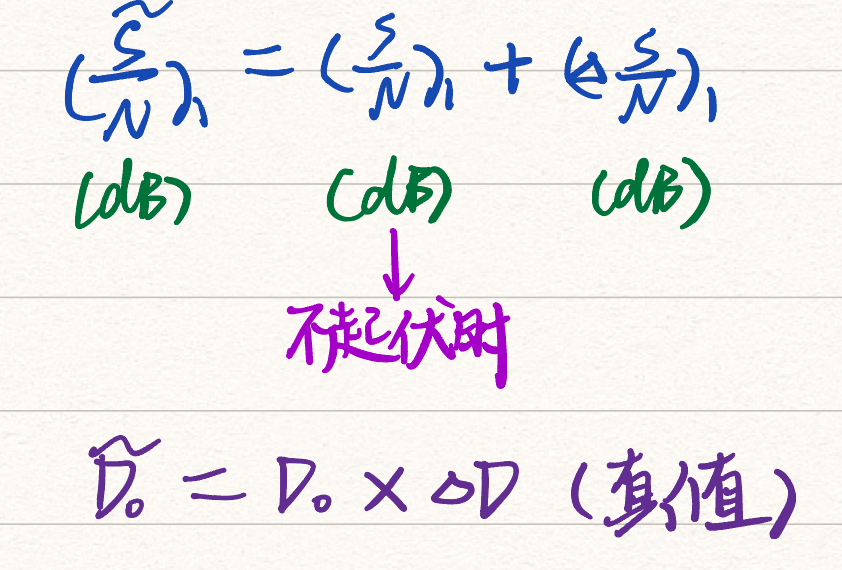 (S̃/N)₁ = (S/N)₁ + (△S/N)₁
(dB) (dB) (dB)
↓
不起伏时
D̃₀ = D₀ × △D (真值)